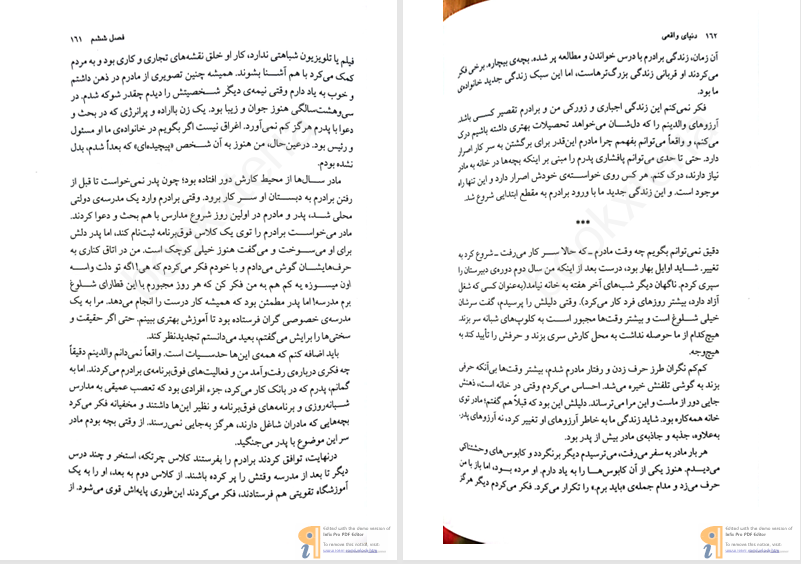 فصل ششم ۱۶۱
فیلم یا تلویزیون شباهتی ندارد، کار او خلق نقشه‌های تجاری و کاری بود و به مردم
کمک می‌کرد با هم آشنا بشوند. همیشه چنین تصویری از مادرم در ذهن داشتم
و خوب به یاد دارم وقتی نیمه‌ی دیگر شخصیتش را دیدم چقدر شوکه شدم. در
سی‌وهشت‌سالگی هنوز جوان و زیبا بود. یک زن بااراده و پرانرژی که در بحث و
دعوا با پدرم هرگز کم نمی‌آورد. اغراق نیست اگر بگویم در خانواده‌ی ما او مسئول
و رئیس بود. درعین‌حال، من هنوز به آن شخص «پیچیده‌ای» که بعداً شدم، بدل
نشده بودم.
مادر سال‌ها از محیط کارش دور افتاده بود؛ چون پدر نمی‌خواست تا قبل از
رفتن برادرم به دبستان او سر کار برود. وقتی برادرم وارد یک مدرسه‌ی دولتی
محلی شد، پدر و مادرم در اولین روز شروع مدارس با هم بحث و دعوا کردند.
مادر می‌خواست برادرم را توی یک کلاس فوق‌برنامه ثبت‌نام کند، اما پدر دلش
برای او می‌سوخت و می‌گفت هنوز خیلی کوچک است. من در اتاق کناری به
حرف‌هایشان گوش می‌دادم و با خودم فکر می‌کردم که هی! اگه تو دلت واسه
اون میسوزه یه کم هم به من فکر کن که هر روز مجبورم با این قطارای شلوغ
برم مدرسه! اما پدر مطمئن بود که همیشه کار درست را انجام می‌دهد. مرا به یک
مدرسه‌ی خصوصی گران فرستاده بود تا آموزش بهتری ببینم. حتی اگر حقیقت و
سختی‌ها را برایش می‌گفتم، بعید می‌دانستم تجدیدنظر کند.
باید اضافه کنم که همه‌ی این‌ها حدسیات است. واقعاً نمی‌دانم والدینم دقیقاً
چه فکری درباره‌ی رفت‌وآمد من و فعالیت‌های فوق‌برنامه‌ی برادرم می‌کردند. اما به
گمانم، پدرم که در بانک کار می‌کرد، جزء افرادی بود که تعصب عمیقی به مدارس
شبانه‌روزی و برنامه‌های فوق‌برنامه و نظیر این‌ها داشتند و مخفیانه فکر می‌کرد
بچه‌هایی که مادران شاغل دارند، هرگز به‌جایی نمی‌رسند. از وقتی بچه بودم مادر
سر این موضوع با پدر می‌جنگید.
درنهایت، توافق کردند برادرم را بفرستند کلاس چرتکه، استخر و چند درس
دیگر تا بعد از مدرسه وقتش را پر کرده باشند. از کلاس دوم به بعد، او را به یک
آموزشگاه تقویتی هم فرستادند، فکر می‌کردند این‌طوری پایه‌اش قوی می‌شود. از
Edited with the demo version of
Infix Pro PDF Editor
To remove this notice, visit:
۱۶۲ دنیای واقعی
آن زمان، زندگی برادرم با درس خواندن و مطالعه پر شده. بچه‌ی بیچاره. برخی فکر
می‌کردند او قربانی زندگی بزرگ‌ترهاست، اما این سبک زندگی جدید خانواده‌ی
ما بود.
فکر نمی‌کنم این زندگی اجباری و زورکی من و برادرم تقصیر کسی باشد
آرزوهای والدینم را که دل‌شان می‌خواهد تحصیلات بهتری داشته باشیم درک
می‌کنم، و واقعاً می‌توانم بفهمم چرا مادرم این‌قدر برای برگشتن به سر کار اصرار
دارد. حتی تا حدی می‌توانم پافشاری پدرم را مبنی بر اینکه بچه‌ها در خانه به مادر
نیاز دارند، درک کنم. هر کس روی خواسته‌ی خودش اصرار دارد و این تنها راه
موجود است. و این زندگی جدید ما با ورود برادرم به مقطع ابتدایی شروع شد.
***
دقیق نمی‌توانم بگویم چه وقت مادرم ـ که حالا سر کار می‌رفت ـ شروع کرد به
تغییر. شاید اوایل بهار بود، درست بعد از اینکه من سال دوم دوره‌ی دبیرستان را
سپری کردم. ناگهان دیگر شب‌های آخر هفته به خانه نیامد(به‌عنوان کسی که شغل
آزاد دارد، بیشتر روزهای فرد کار می‌کرد). وقتی دلیلش را پرسیدم، گفت سرشان
خیلی شلوغ است و بیشتر وقت‌ها مجبور است به کلوپ‌های شبانه سر بزند.
هیچ‌کدام از ما حوصله نداشت به محل کارش سری بزند و حرفش را تأیید کند به
هیچ‌وجه.
کم‌کم نگران طرز حرف زدن و رفتار مادرم شدم، بیشتر وقت‌ها بی‌آنکه حرفی
بزند به گوشی تلفنش خیره می‌شد. احساس می‌کردم وقتی در خانه است، ذهنش
جایی دور از ماست و این مرا می‌ترساند. دلیلش این بود که قبلاً هم گفتم؛ مادر توی
خانه همه‌کاره بود. شاید زندگی ما به خاطر آرزوهای او تغییر کرد، نه آرزوهای پدر.
به‌علاوه، جذبه و جاذبه‌ی مادر بیش از پدر بود.
هر بار مادر به سفر می‌رفت، می‌ترسیدم دیگر برنگردد و کابوس‌های وحشتناکی
می‌دیدم. هنوز یکی از آن کابوس‌ها را به یاد دارم. او مرده بود، اما باز با من
حرف می‌زد و مدام جمله‌ی «باید برم.» را تکرار می‌کرد. فکر می‌کردم دیگر هرگز
Edited with the demo version of
Infix Pro PDF Editor
To remove this notice, visit: